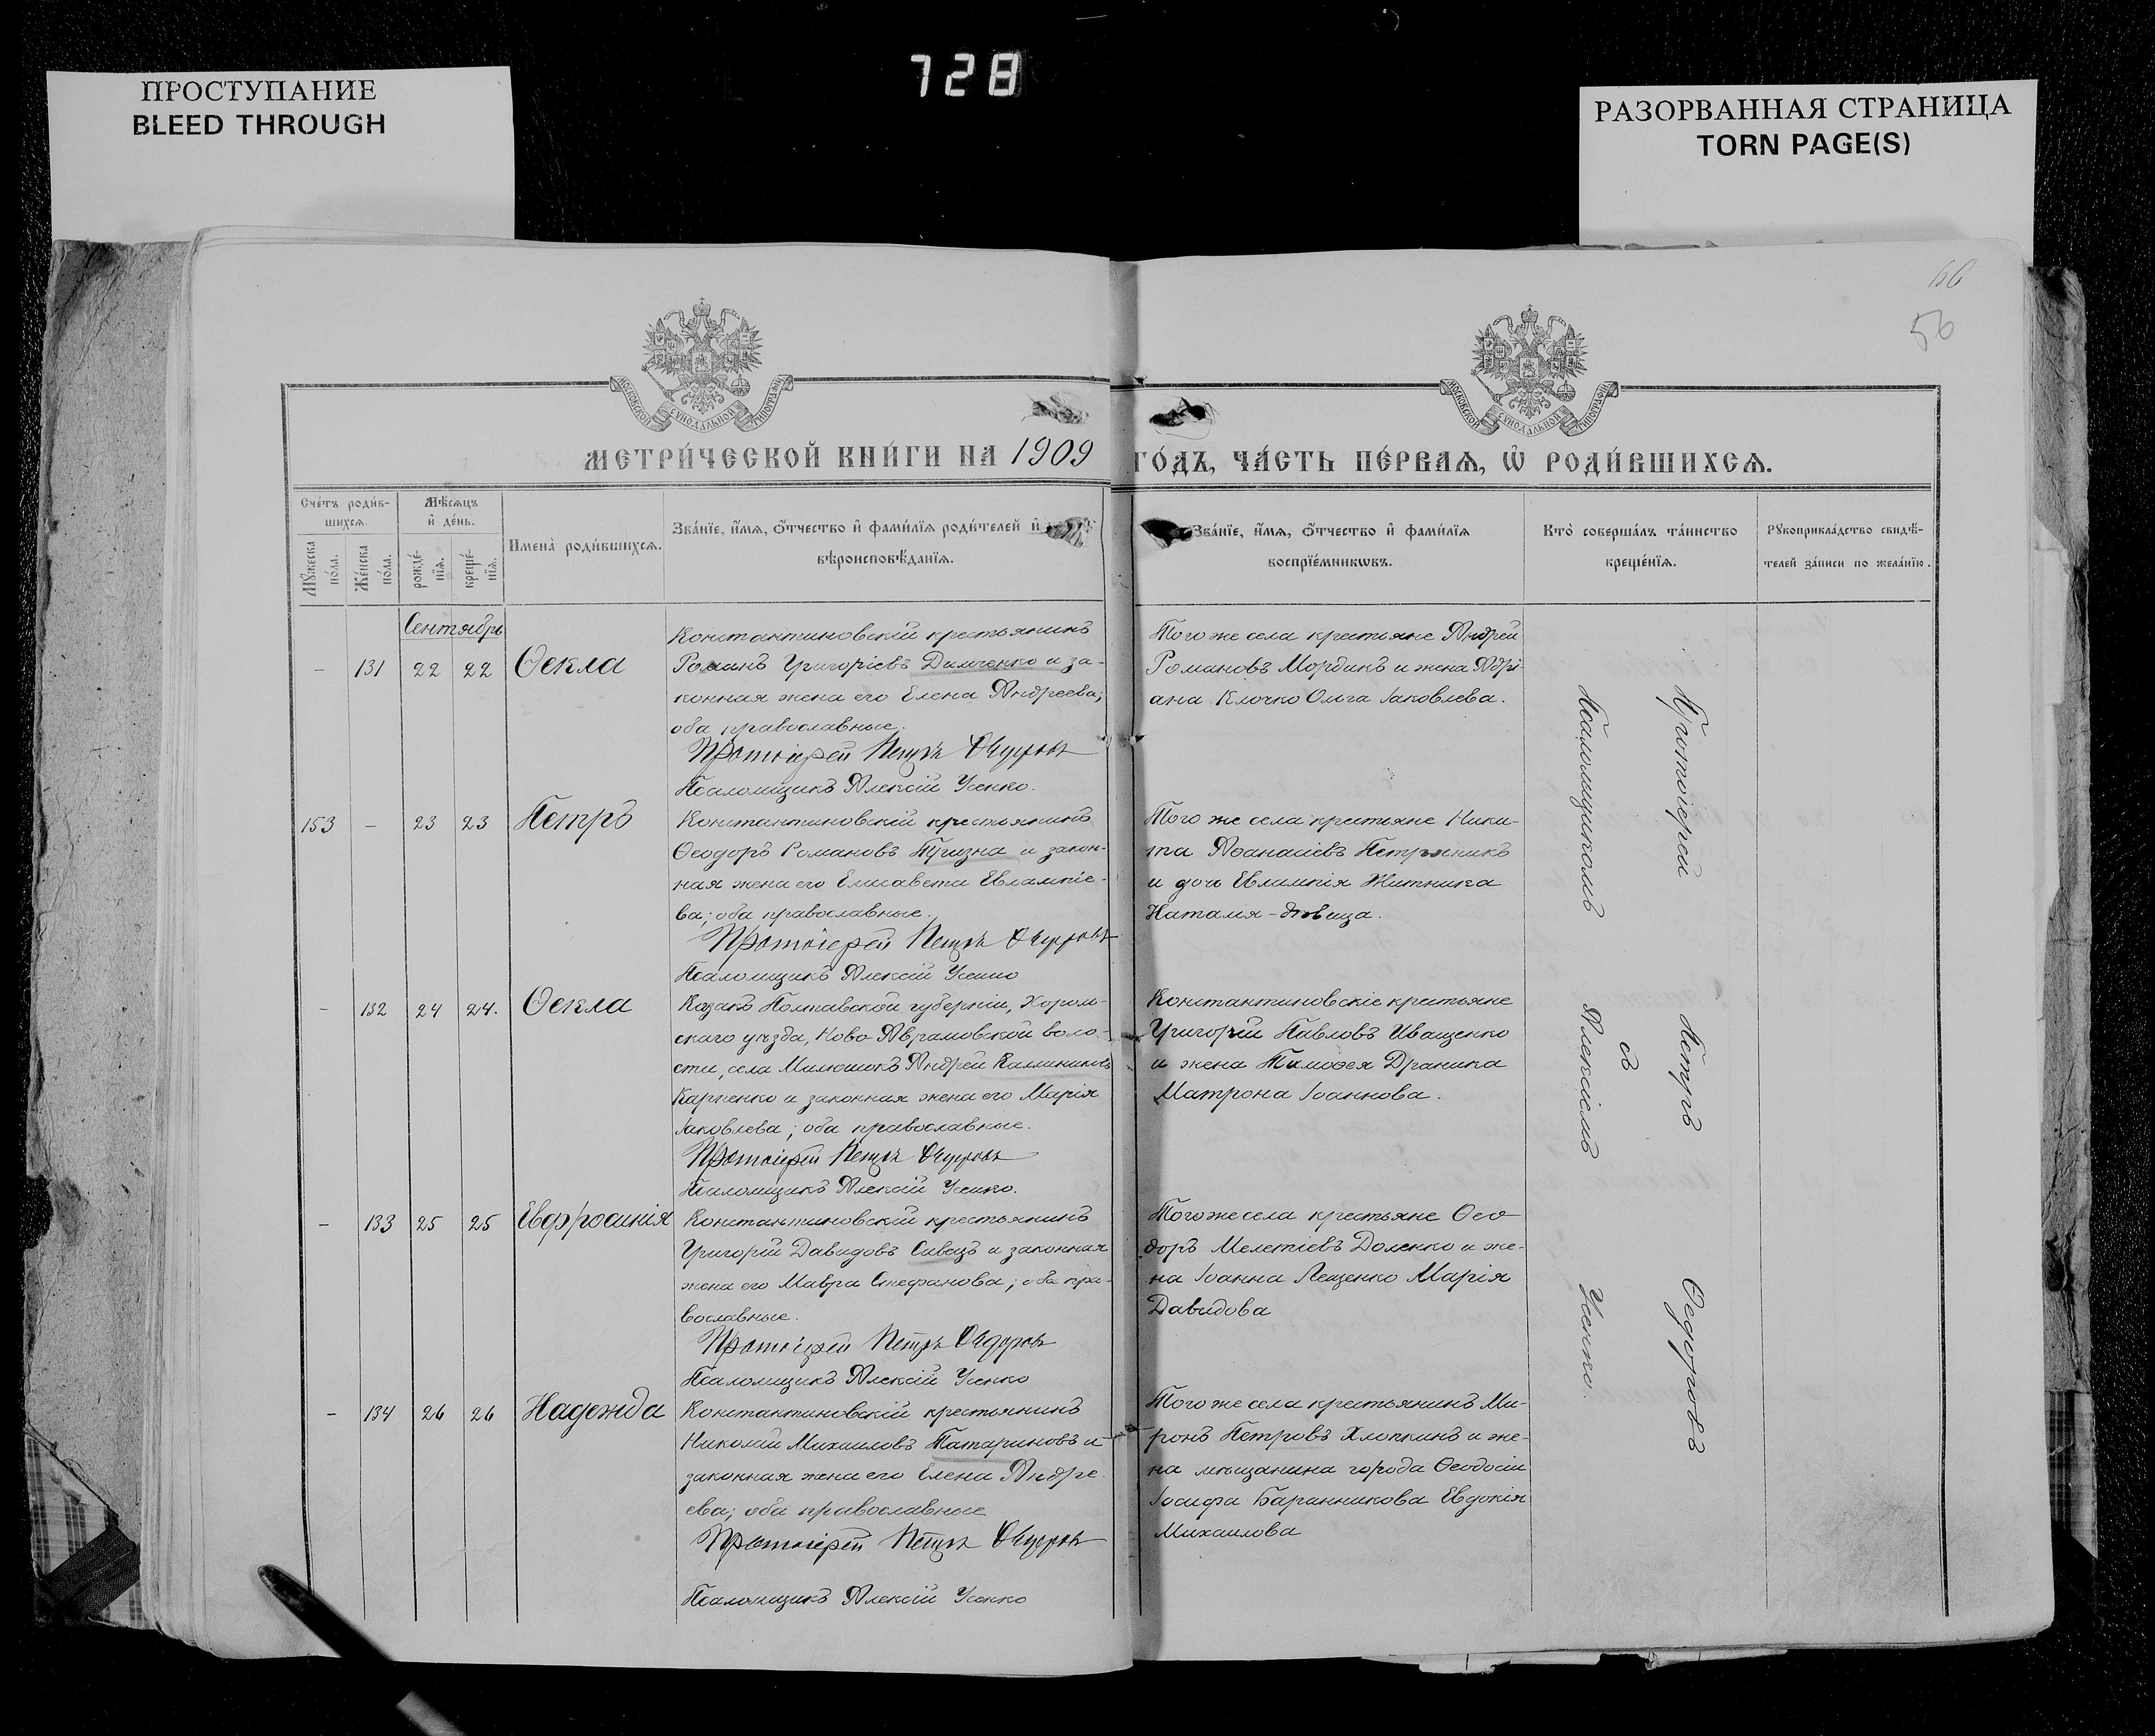 728
ПРОСТУПАНИЕ
BLEED THROUGH
РАЗОРВАННАЯ СТРАНИЦА
TORN PAGE(S)
56
МОСКОВСКОЙ СѴНОДАЛЬНОЙ ТИПОГРАФІИ
МОСКОВСКОЙ СѴНОДАЛЬНОЙ ТИПОГРАФІИ
МЕТРИ́ЧЕСКОЙ КНИ́ГИ НА 1909 ГО́ДЪ, ЧА́СТЬ ПЕ́РВАѦ, Ѡ҆ РОДИ́ВШИХСѦ.
Сче́тъ роди́в-
шихсѧ.
Мꙋ́жеска по́ла.
Же́нска по́ла.
Мѣ́сѧцъ
и҆ де́нь.
рожде́-
нїѧ.
креще́-
нїѧ.
Имена̀ роди́вшихсѧ.
Зва́нїе, и҆́мѧ, ѻ҆́тчество и҆ фами́лїѧ роди́телей и҆
вѣроисповѣ́данїѧ.
Зва́нїе, и҆́мѧ, ѻ҆́тчество и҆ фами́лїѧ
воспрїе́мникѡвъ.
Кто̀ соверша́лъ та́инство
креще́нїѧ.
Рꙋкоприкла́дство свидѣ́-
телей за́писи по жела́нїю.
Сентябрь
- 131 22 22 Ѳекла
Константиновскій крестьянинъ
Романъ Григоріевъ Димченко и за-
конная жена его Елена Андреева;
оба православные.
Протоіерей Петръ Ѳедоровъ
Псаломщикъ Алексій Усенко.
Того же села крестьяне Андрей
Романовъ Мордикъ и жена Адрі-
ана Клочко Ольга Іаковлева.
153 - 23 23 Петръ
Константиновскій крестьянинъ
Ѳеодоръ Романовъ Пугизна и закон-
ная жена его Елисавета Евлампіе-
ва; оба православные.
Протоіерей Петръ Ѳедоровъ
Псаломщикъ Алексій Усенко
Того же села крестьяне Ники-
та Аѳанасіевъ Петряникъ
и дочь Евлампія Житника
Наталія - девица.
- 132 24 24. Ѳекла
Казакъ Полтавской губерніи, Хороль-
скаго уѣзда, Ново-Аврамовской воло-
сти, села Милюшокъ Андрей Каллиниковъ
Карпенко и законная жена его Марія
Іаковлева; оба православные.
Протоіерей Петръ Ѳедоровъ
Псаломщикъ Алексій Усенко.
Константиновскіе крестьяне
Григорій Павловъ Иващенко
и жена Тимоѳея Драника
Матрона Іоаннова.
- 133 25 25 Евфросинія
Константиновскій крестьянинъ
Григорій Давидовъ Сивацъ и законная
жена его Мавра Стефанова; оба пра-
вославные.
Протоіерей Петръ Ѳедоровъ
Псаломщикъ Алексій Усенко
Того же села крестьяне Ѳео-
доръ Мелетіевъ Доленко и же-
на Іоанна Лещенко Марія
Давидова
- 134 26 26 Надежда
Константиновскій крестьянинъ
Николай Михаиловъ Татариновъ и
законная жена его Елена Андре-
ева; оба православные
Протоіерей Петръ Ѳедоровъ
Псаломщикъ Алексій Усенко
Того же села крестьянинъ Ми-
ронъ Петровъ Хлопкинъ и же-
на мѣщанина города Ѳеодосіи
Іосифа Баранникова Евдокія
Михаилова
Протоіерей Петръ Ѳедоровъ
съ
Псаломщикомъ Алексіемъ Усенко.